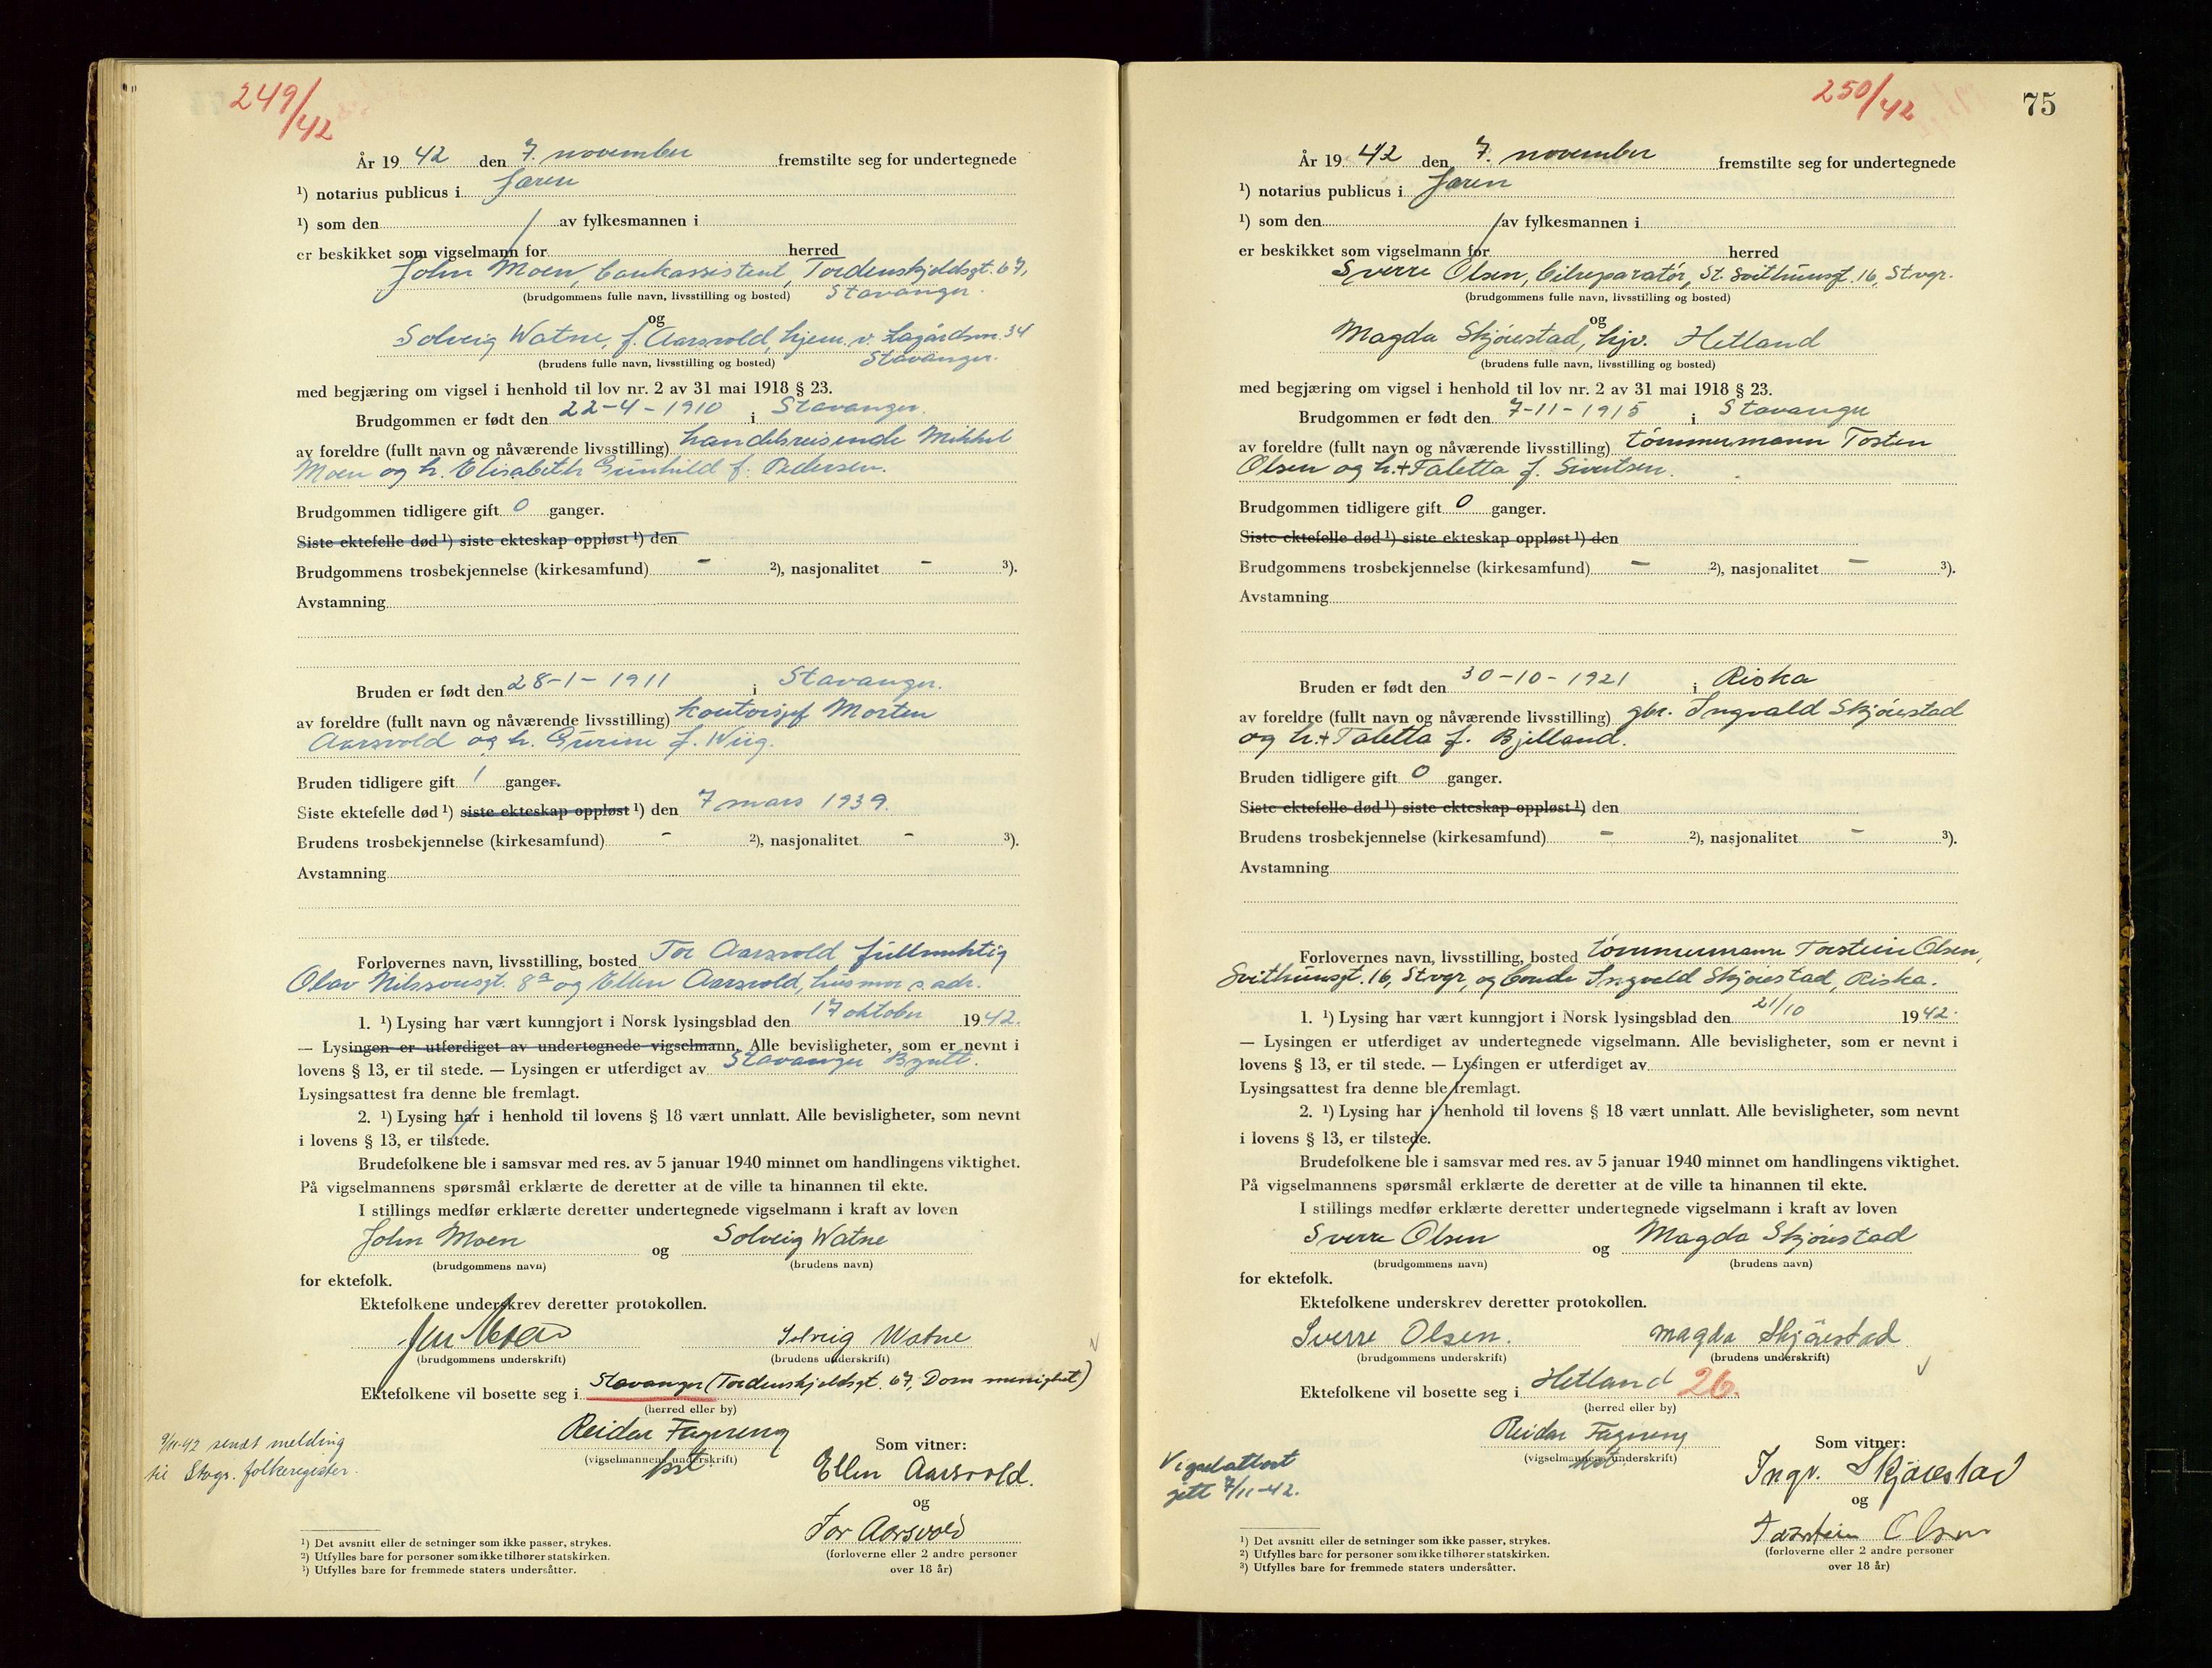 249/42
År 19 42 den 7. november fremstilte seg for undertegnede
¹) notarius publicus i Jæren
¹) som den av fylkesmannen i
er beskikket som vigselmann for herred
John Moen, bankassistent, Tordenskjoldsgt. 67,
(brudgommens fulle navn, livsstilling og bosted) Stavanger.
og
Solveig Watne, f. Aarsvold, hjem. v. Lagårdsvn. 34
(brudens fulle navn, livsstilling og bosted) Stavanger.
med begjæring om vigsel i henhold til lov nr. 2 av 31 mai 1918 § 23.
Brudgommen er født den 22-4-1910 i Stavanger.
av foreldre (fullt navn og nåværende livsstilling) handelsreisende Mikkel
Moen og h. Elisabeth Gunhild f. Pedersen.
Brudgommen tidligere gift 0 ganger.
Siste ektefelle død ¹) siste ekteskap oppløst ¹) den
Brudgommens trosbekjennelse (kirkesamfund) - ²), nasjonalitet - ³).
Avstamning
Bruden er født den 28-1-1911 i Stavanger.
av foreldre (fullt navn og nåværende livsstilling) kontorsjef Morten
Aarsvold og h. Gurine f. Wiig.
Bruden tidligere gift 1 ganger.
Siste ektefelle død ¹) siste ekteskap oppløst ¹) den 7 mars 1939.
Brudens trosbekjennelse (kirkesamfund) - ²), nasjonalitet - ³).
Avstamning
Forlovernes navn, livsstilling, bosted Tor Aarsvold fullmektig
Olav Nilssonsgt. 8a og Ellen Aarsvold, husmor s. adr.
1. ¹) Lysing har vært kunngjort i Norsk lysingsblad den 17 oktober 1942.
— Lysingen er utferdiget av undertegnede vigselmann. Alle bevisligheter, som er nevnt i
lovens § 13, er til stede. — Lysingen er utferdiget av Stavanger Byrett.
Lysingsattest fra denne ble fremlagt.
2. ¹) Lysing har i henhold til lovens § 18 vært unnlatt. Alle bevisligheter, som nevnt
i lovens § 13, er tilstede.
Brudefolkene ble i samsvar med res. av 5 januar 1940 minnet om handlingens viktighet.
På vigselmannens spørsmål erklærte de deretter at de ville ta hinannen til ekte.
I stillings medfør erklærte deretter undertegnede vigselmann i kraft av loven
John Moen og Solveig Watne
(brudgommens navn) (brudens navn)
for ektefolk.
Ektefolkene underskrev deretter protokollen.
John Moen Solveig Watne
(brudgommens underskrift) (brudens underskrift)
Ektefolkene vil bosette seg i Stavanger (Tordenskjoldsgt. 67, Dom menighet)
(herred eller by)
Reidar Fagreng
(vigselmannens underskrift)
9/11-42 sendt melding
til Stvgr. folkeregister.
Som vitner:
Ellen Aarsvold.
og
Tor Aarsvold
(forloverne eller 2 andre personer
over 18 år)
¹) Det avsnitt eller de setninger som ikke passer, strykes.
²) Utfylles bare for personer som ikke tilhører statskirken.
³) Utfylles bare for fremmede staters undersåtter.
250/42
75
År 19 42 den 7. november fremstilte seg for undertegnede
¹) notarius publicus i Jæren
¹) som den av fylkesmannen i
er beskikket som vigselmann for herred
Sverre Olsen, bilreparatør, St. Svithunsgt. 16, Stvgr.
(brudgommens fulle navn, livsstilling og bosted)
og
Magda Skjørestad, hjv. Hetland
(brudens fulle navn, livsstilling og bosted)
med begjæring om vigsel i henhold til lov nr. 2 av 31 mai 1918 § 23.
Brudgommen er født den 7-11-1915 i Stavanger
av foreldre (fullt navn og nåværende livsstilling) tømmermann Tosten
Olsen og h.+Taletta f. Sivertsen.
Brudgommen tidligere gift 0 ganger.
Siste ektefelle død ¹) siste ekteskap oppløst ¹) den
Brudgommens trosbekjennelse (kirkesamfund) - ²), nasjonalitet - ³).
Avstamning
Bruden er født den 30-10-1921 i Riska
av foreldre (fullt navn og nåværende livsstilling) gbr. Ingvald Skjørestad
og h.+ Taletta f. Bjelland.
Bruden tidligere gift 0 ganger.
Siste ektefelle død ¹) siste ekteskap oppløst ¹) den
Brudens trosbekjennelse (kirkesamfund) - ²), nasjonalitet - ³).
Avstamning
Forlovernes navn, livsstilling, bosted tømmermann Torstein Olsen,
Svithunsgt. 16, Stvgr, og bonde Ingvald Skjørestad, Riska.
1. ¹) Lysing har vært kunngjort i Norsk lysingsblad den 21/10 1942.
— Lysingen er utferdiget av undertegnede vigselmann. Alle bevisligheter, som er nevnt i
lovens § 13, er til stede. — Lysingen er utferdiget av
Lysingsattest fra denne ble fremlagt.
2. ¹) Lysing har i henhold til lovens § 18 vært unnlatt. Alle bevisligheter, som nevnt
i lovens § 13, er tilstede.
Brudefolkene ble i samsvar med res. av 5 januar 1940 minnet om handlingens viktighet.
På vigselmannens spørsmål erklærte de deretter at de ville ta hinannen til ekte.
I stillings medfør erklærte deretter undertegnede vigselmann i kraft av loven
Sverre Olsen og Magda Skjørestad
(brudgommens navn) (brudens navn)
for ektefolk.
Ektefolkene underskrev deretter protokollen.
Sverre Olsen. Magda Skjørestad
(brudgommens underskrift) (brudens underskrift)
Ektefolkene vil bosette seg i Hetland 26.
(herred eller by)
Reidar Fagreng
(vigselmannens underskrift)
Vigselattest
gitt 7/11-42.
Som vitner:
Ingv. Skjørestad
og
Torstein Olsen
(forloverne eller 2 andre personer
over 18 år)
¹) Det avsnitt eller de setninger som ikke passer, strykes.
²) Utfylles bare for personer som ikke tilhører statskirken.
³) Utfylles bare for fremmede staters undersåtter.